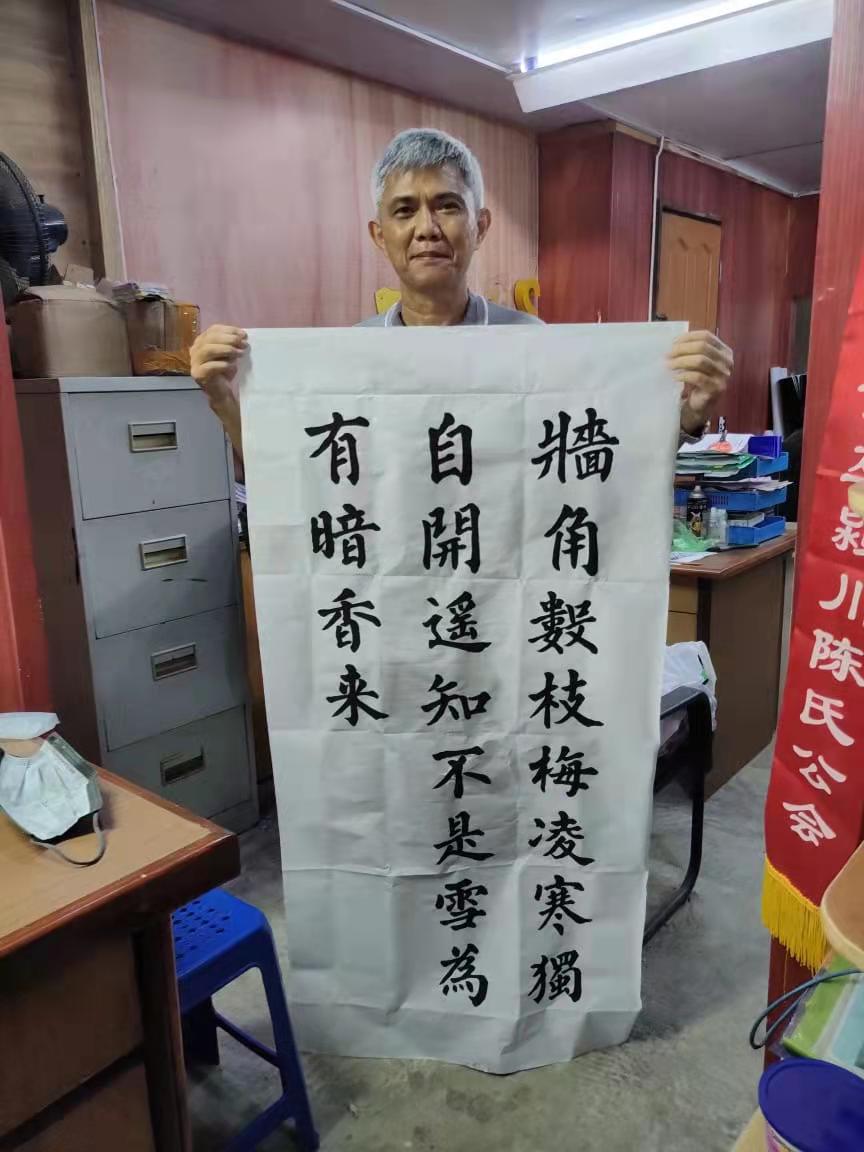 牆角數枝梅凌寒獨
自開遥知不是雪為
有暗香来
颍川陈氏公会
S